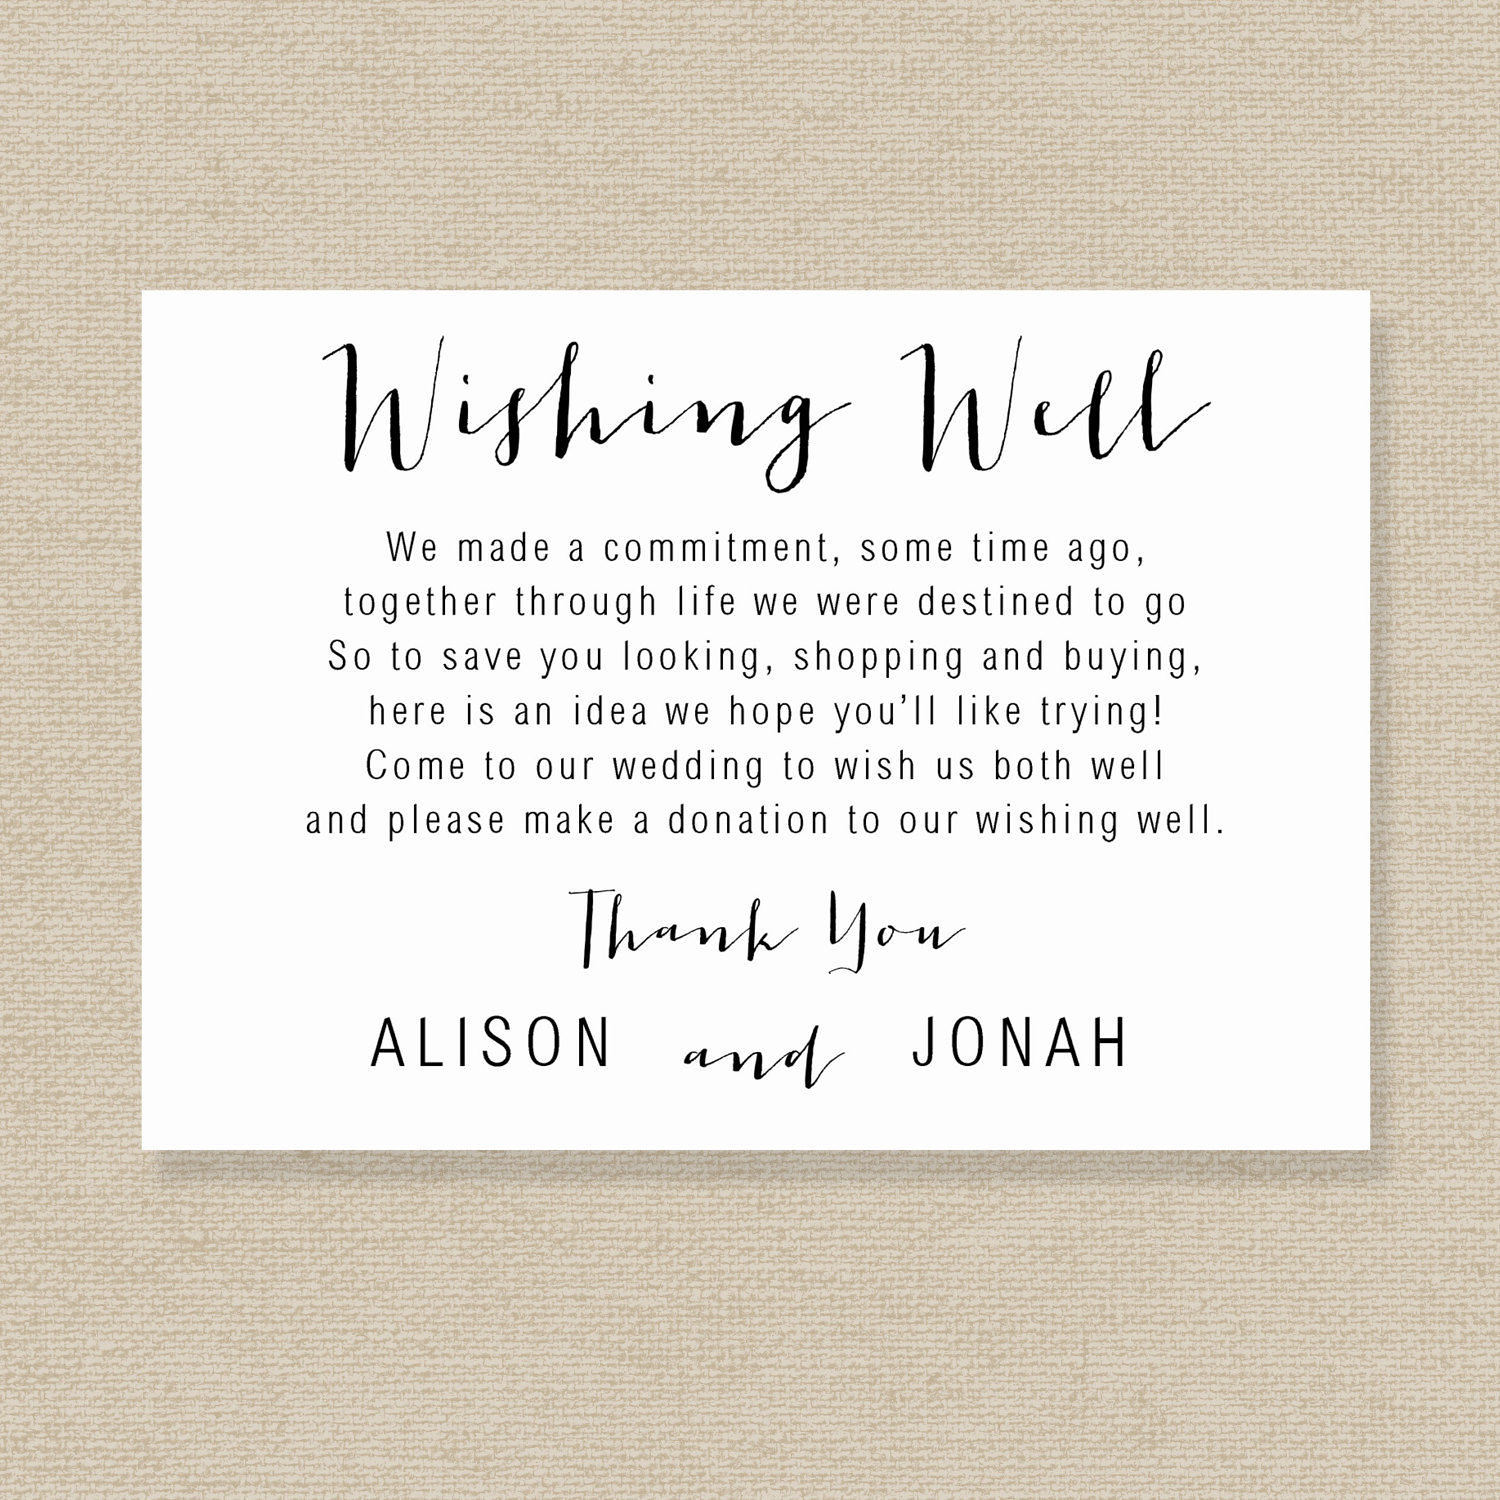 Wishing Well
We made a commitment, some time ago,
together through life we were destined to go
So to save you looking, shopping and buying,
here is an idea we hope you’ll like trying!
Come to our wedding to wish us both well
and please make a donation to our wishing well.
Thank You
ALISON and JONAH